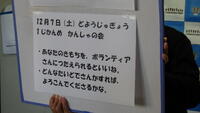 12月7日(土)どようじゅぎょう
1じかんめ かんしゃの会
・あなたのきもちを、ボランティア
さんにつたえられるといいね。
・どんないいとでさんかすれば、
よろこんでくださるかな。